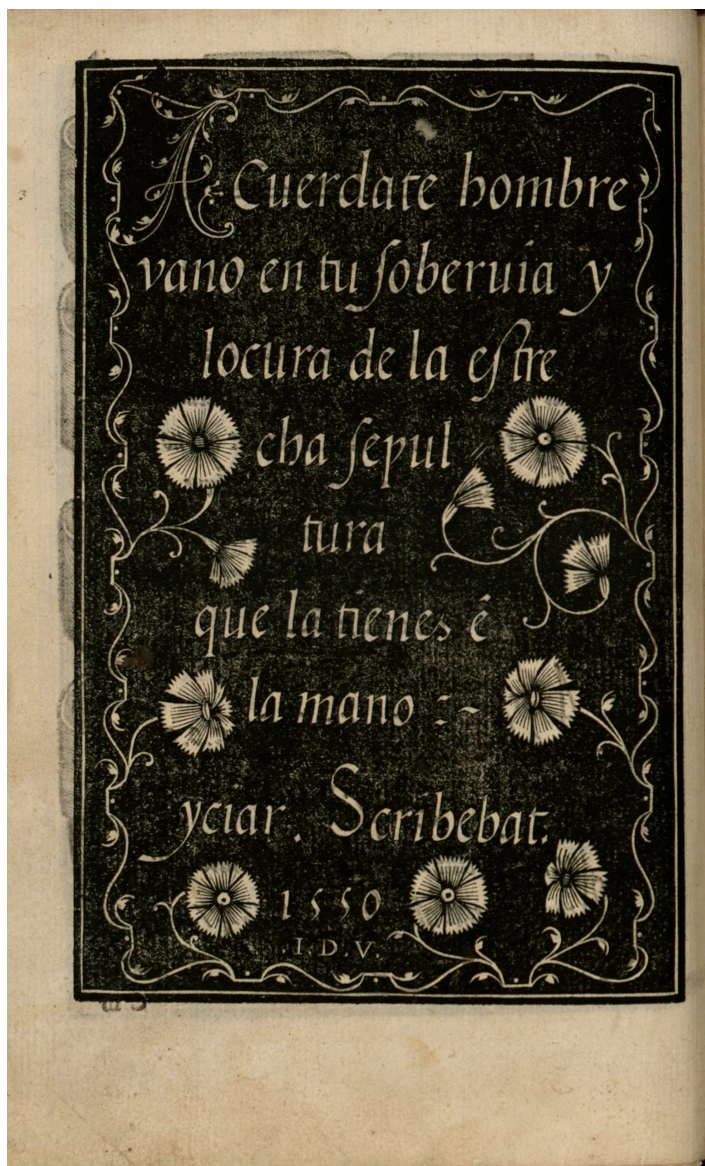 ACuerdate hombre
vano en tu ſoberuia y
locura de la eſtre
cha ſepul
tura
que la tienes ẽ
la mano :~
yciar. Scribebat.
1550
.I.D.V.